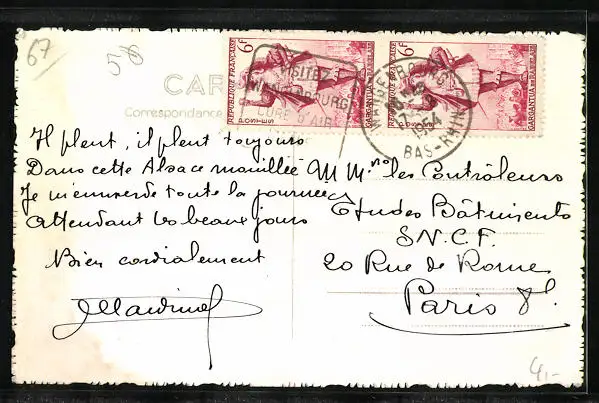 67
58
CAR
Correspondance
REPUBLIQUE FRANÇAISE 6F
POSTES
GARGANTUA DE RABELAIS
REPUBLIQUE FRANÇAISE 6F
POSTES
GARGANTUA DE RABELAIS
VISITEZ
WANGENBOURG
CURE D'AIR
WANGENBOURG
1954
BAS-RHIN
Il pleut, il pleut toujours
Dans cette Alsace mouillée
Je m'emmerde toute la journée
Attendant les beaux jours
Bien cordialement
M M.rs les Contrôleurs
Etudes Bâtiments
S.N.C.F.
20 Rue de Rome
Paris 8e.
4,-